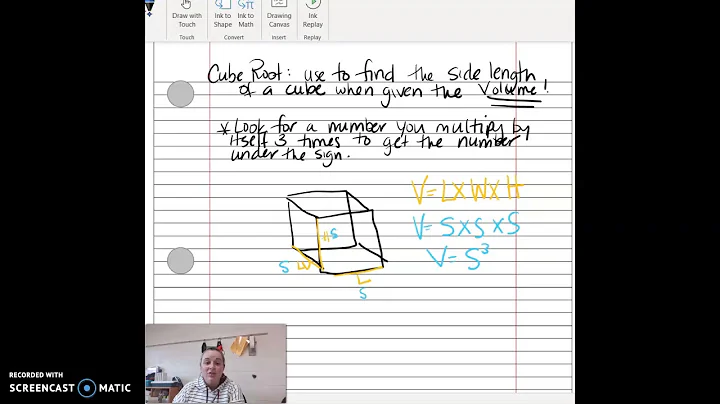 Draw with Touch
Ink to Shape
Ink to Math
Drawing Canvas
Ink Replay
Touch
Convert
Insert
Replay
Cube Root: use to find the side length
of a cube when given the Volume!
* Look for a number you multiply by
itself 3 times to get the number
under the sign.
V=LxWxH
V=SxSxS
V=S³
H S
S W
L
S
RECORDED WITH
SCREENCAST MATIC